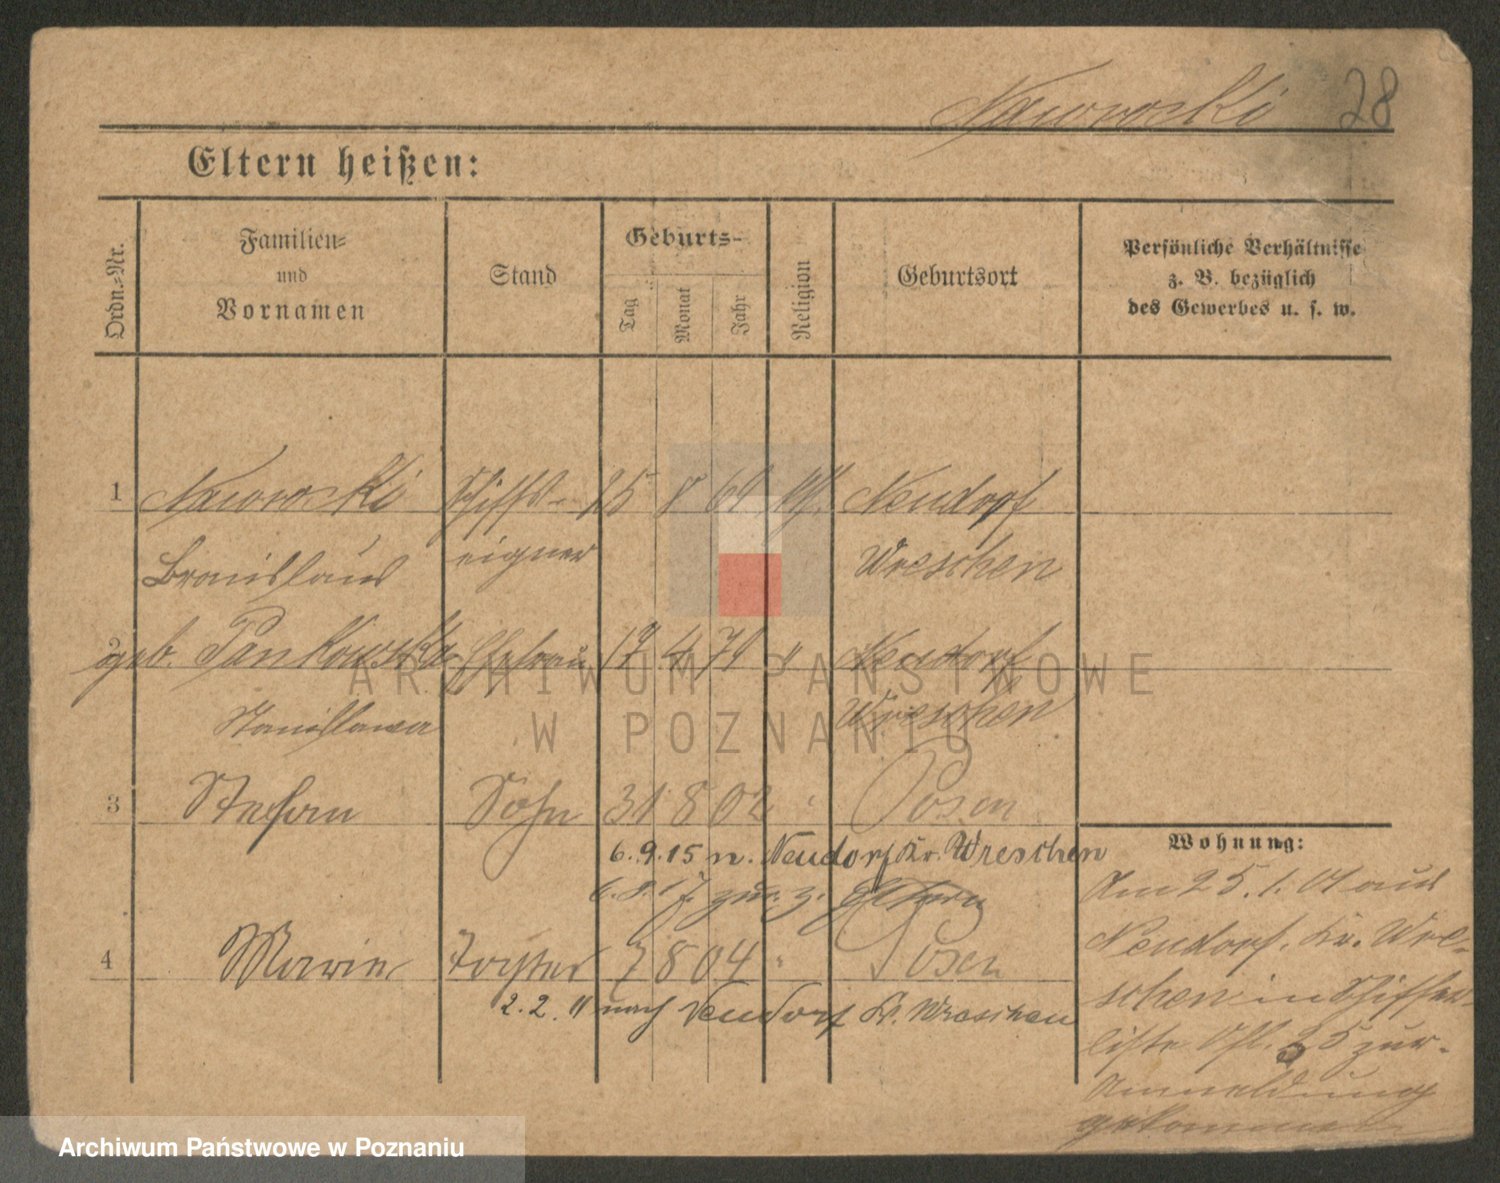 Nawrocki 28
Eltern heißen:
Ordn.-Nr.
Familien-
und
Vornamen
Stand
Geburts-
Tag
Monat
Jahr
Religion
Geburtsort
Persönliche Verhältnisse
z. B. bezüglich
des Gewerbes u. s. w.
1 Nawrocki Schiffs- 25 8 Neudorf
Bronislaus eigner Wreschen
2 geb. Pankowska Ehefrau 17 4 " Neudorf
Stanislawa Wreschen
3 Stefan Sohn 31 8 02 " Posen
6.9.15 n. Neudorf Kr. Wreschen
zur. z. Eltern
4 Marie Tochter 7 8 04 " Posen
2.2.11 nach Neudorf Kr. Wreschen
Wohnung:
Am 25.1.01 aus
Neudorf, Kr. Wre-
schen in Schiffer-
liste 25 zur
Anmeldung
gekommen
ARCHIWUM PAŃSTWOWE
W POZNANIU
Archiwum Państwowe w Poznaniu